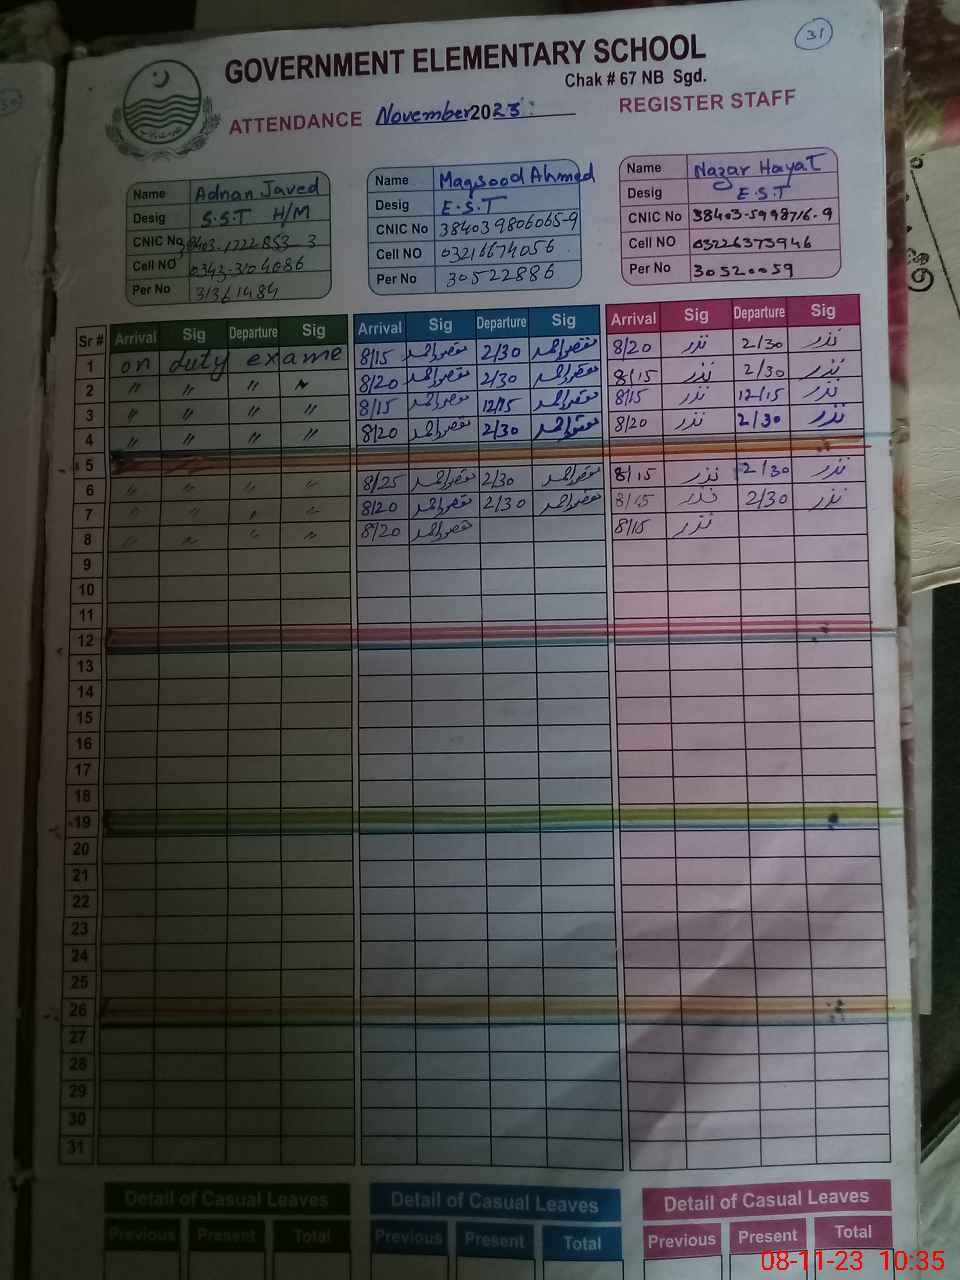 31
GOVERNMENT ELEMENTARY SCHOOL
Chak # 67 NB Sgd.
ATTENDANCE November 2023 REGISTER STAFF
Name Adnan Javed
Desig S.S.T H/M
CNIC No 38403-1722853-3
Cell NO 0343-3104086
Per No 31361484
Name Maqsood Ahmed
Desig E.S.T
CNIC No 384039806065-9
Cell NO 03216674056
Per No 30522886
Name Nazar Hayat
Desig E.S.T
CNIC No 38403-5998716-9
Cell NO 03226373946
Per No 30520059
Sr # Arrival Sig Departure Sig Arrival Sig Departure Sig Arrival Sig Departure Sig
1 on duty exame 8/15 مقصود احمد 2/30 مقصود احمد 8/20 نذر 2/30 نذر
2 " " " " 8/20 مقصود احمد 2/30 مقصود احمد 8/15 نذر 2/30 نذر
3 " " " " 8/15 مقصود احمد 12/15 مقصود احمد 8/15 نذر 12/15 نذر
4 " " " " 8/20 مقصود احمد 2/30 مقصود احمد 8/20 نذر 2/30 نذر
5
6 " " " " 8/25 مقصود احمد 2/30 مقصود احمد 8/15 نذر 2/30 نذر
7 " " " " 8/20 مقصود احمد 2/30 مقصود احمد 8/15 نذر 2/30 نذر
8 " " " " 8/20 مقصود احمد 8/15 نذر
9
10
11
12
13
14
15
16
17
18
19
20
21
22
23
24
25
26
27
28
29
30
31
Detail of Casual Leaves Detail of Casual Leaves Detail of Casual Leaves
Previous Present Total Previous Present Total Previous Present Total
08-11-23 10:35